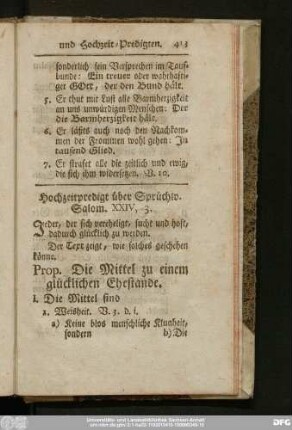 und Hochzeit-Predigten. 413
sonderlich sein Versprechen im Tauf-
bunde: Ein treuer oder wahrhafti-
ger GOtt, der den Bund hält.
5. Er thut mit Lust alle Barmherzigkeit
an uns unwürdigen Menschen: Der
die Barmherzigkeit hält.
6. Er läßts auch noch den Nachkom-
men der Frommen wohl gehen: In
tausend Glied.
7. Er strafet alle die zeitlich und ewig,
die sich ihm widersetzen. V. 10.
Hochzeitpredigt über Sprüchw.
Salom. XXIV, 3.
Jeder, der sich vereheligt, sucht und hoft,
dadurch glücklich zu werden.
Der Text zeigt, wie solches geschehen
könne.
Prop. Die Mittel zu einem
glücklichen Ehestande.
I. Die Mittel sind
a. Weisheit. V. 3. d. i.
a) Keine blos menschliche Klugheit,
sondern b) Die